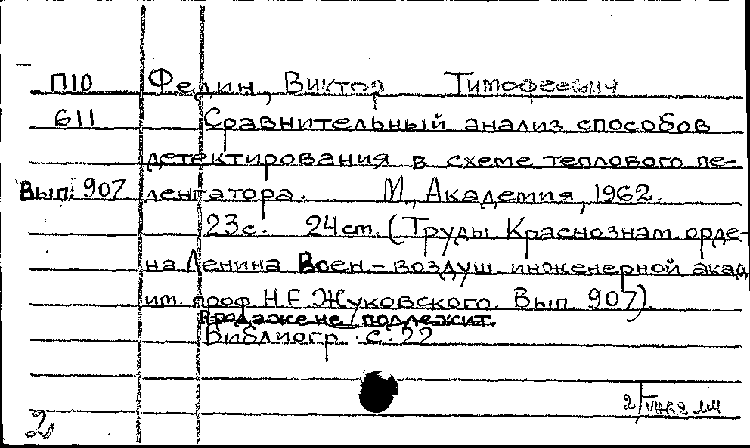 П10 Федин, Виктор Тимофеевич
611 Сравнительный анализ способов
детектирования в схеме теплового пе-
Вып. 907 ленгатора. М., Академия, 1962.
23с. 24см. (Труды Краснознам. орде-
на Ленина Воен.-воздуш. инженерной акад.
им. проф. Н.Е. Жуковского. Вып. 907).
Продаже не подлежит.
Библиогр.: с. 22
2